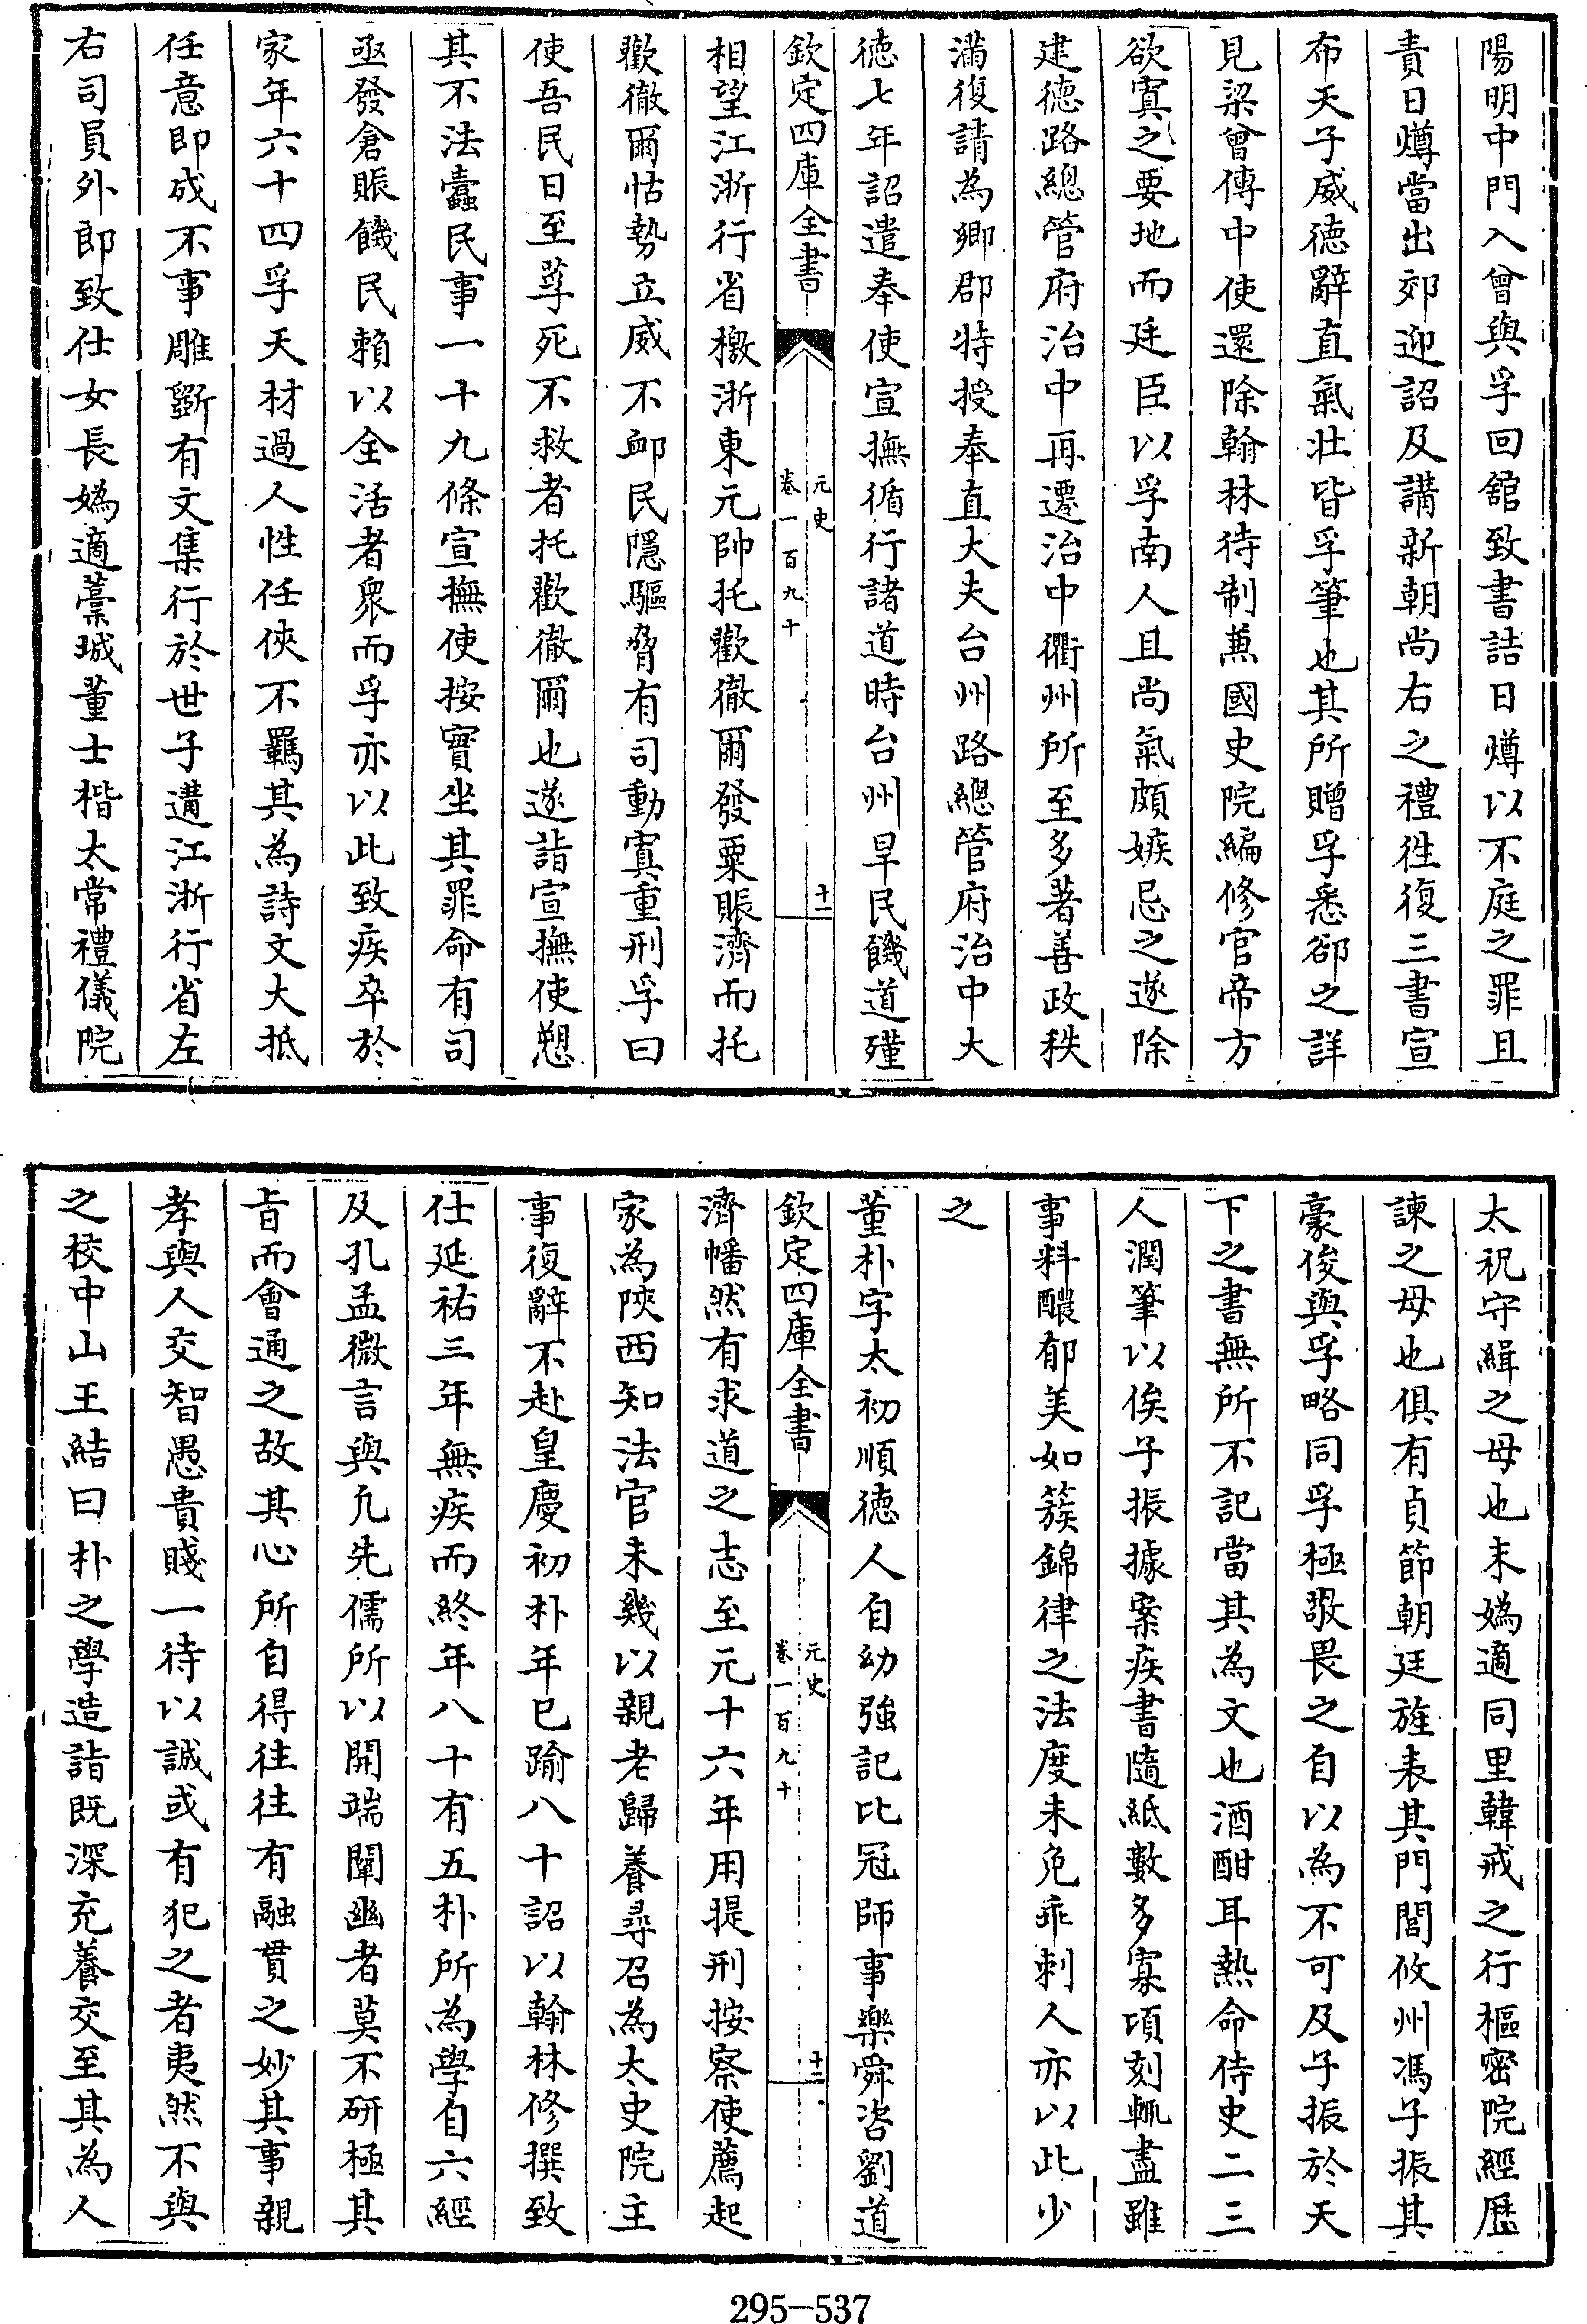 陽明中門入曾與孚回舘致書詰日燇以不庭之罪且
責日燇當出郊迎詔及講新朝尚右之禮徃復三書宣
布天子威徳辭直氣壯皆孚筆也其所贈孚悉郤之詳
見梁曾傳中使還除翰林待制兼國史院編修官帝方
欲寘之要地而廷臣以孚南人且尚氣頗嫉忌之遂除
建徳路總管府治中再遷治中衢州所至多著善政秩
滿復請為鄉郡特授奉直大夫台州路總管府治中大
徳七年詔遣奉使宣撫循行諸道時台州旱民饑道殣
欽定四庫全書
元史
卷一百九十
十一
相望江浙行省檄浙東元帥托歡徹爾發粟賑濟而托
歡徹爾怙勢立威不䘏民隱驅脅有司動寘重刑孚曰
使吾民日至莩死不救者托歡徹爾也遂詣宣撫使愬
其不法蠹民事一十九條宣撫使按實坐其罪命有司
亟發倉賑饑民賴以全活者衆而孚亦以此致疾卒於
家年六十四孚天材過人性任俠不羈其為詩文大抵
任意即成不事雕斵有文集行於世子遘江浙行省左
右司員外郎致仕女長嬀適藁城董士楷太常禮儀院
太祝守緝之母也末嬀適同里韓戒之行樞密院經歴
諫之母也俱有貞節朝廷旌表其門閭攸州馮子振其
豪俊與孚略同孚極敬畏之自以為不可及子振於天
下之書無所不記當其為文也酒酣耳熱命侍史二三
人潤筆以俟子振據案疾書隨紙數多寡頃刻輒盡雖
事料醲郁美如簇錦律之法度未免乖剌人亦以此少
之
董朴字太初順徳人自幼強記比冠師事樂舜咨劉道
欽定四庫全書
元史
卷一百九十
十二
濟幡然有求道之志至元十六年用提刑按察使薦起
家為陝西知法官未幾以親老歸養尋召為太史院主
事復辭不赴皇慶初朴年已踰八十詔以翰林修撰致
仕延祐三年無疾而終年八十有五朴所為學自六經
及孔孟微言與凢先儒所以開端闡幽者莫不研極其
㫖而會通之故其心所自得往往有融貫之妙其事親
孝與人交智愚貴賤一待以誠或有犯之者夷然不與
之校中山王結曰朴之學造詣既深充養交至其為人
295—537